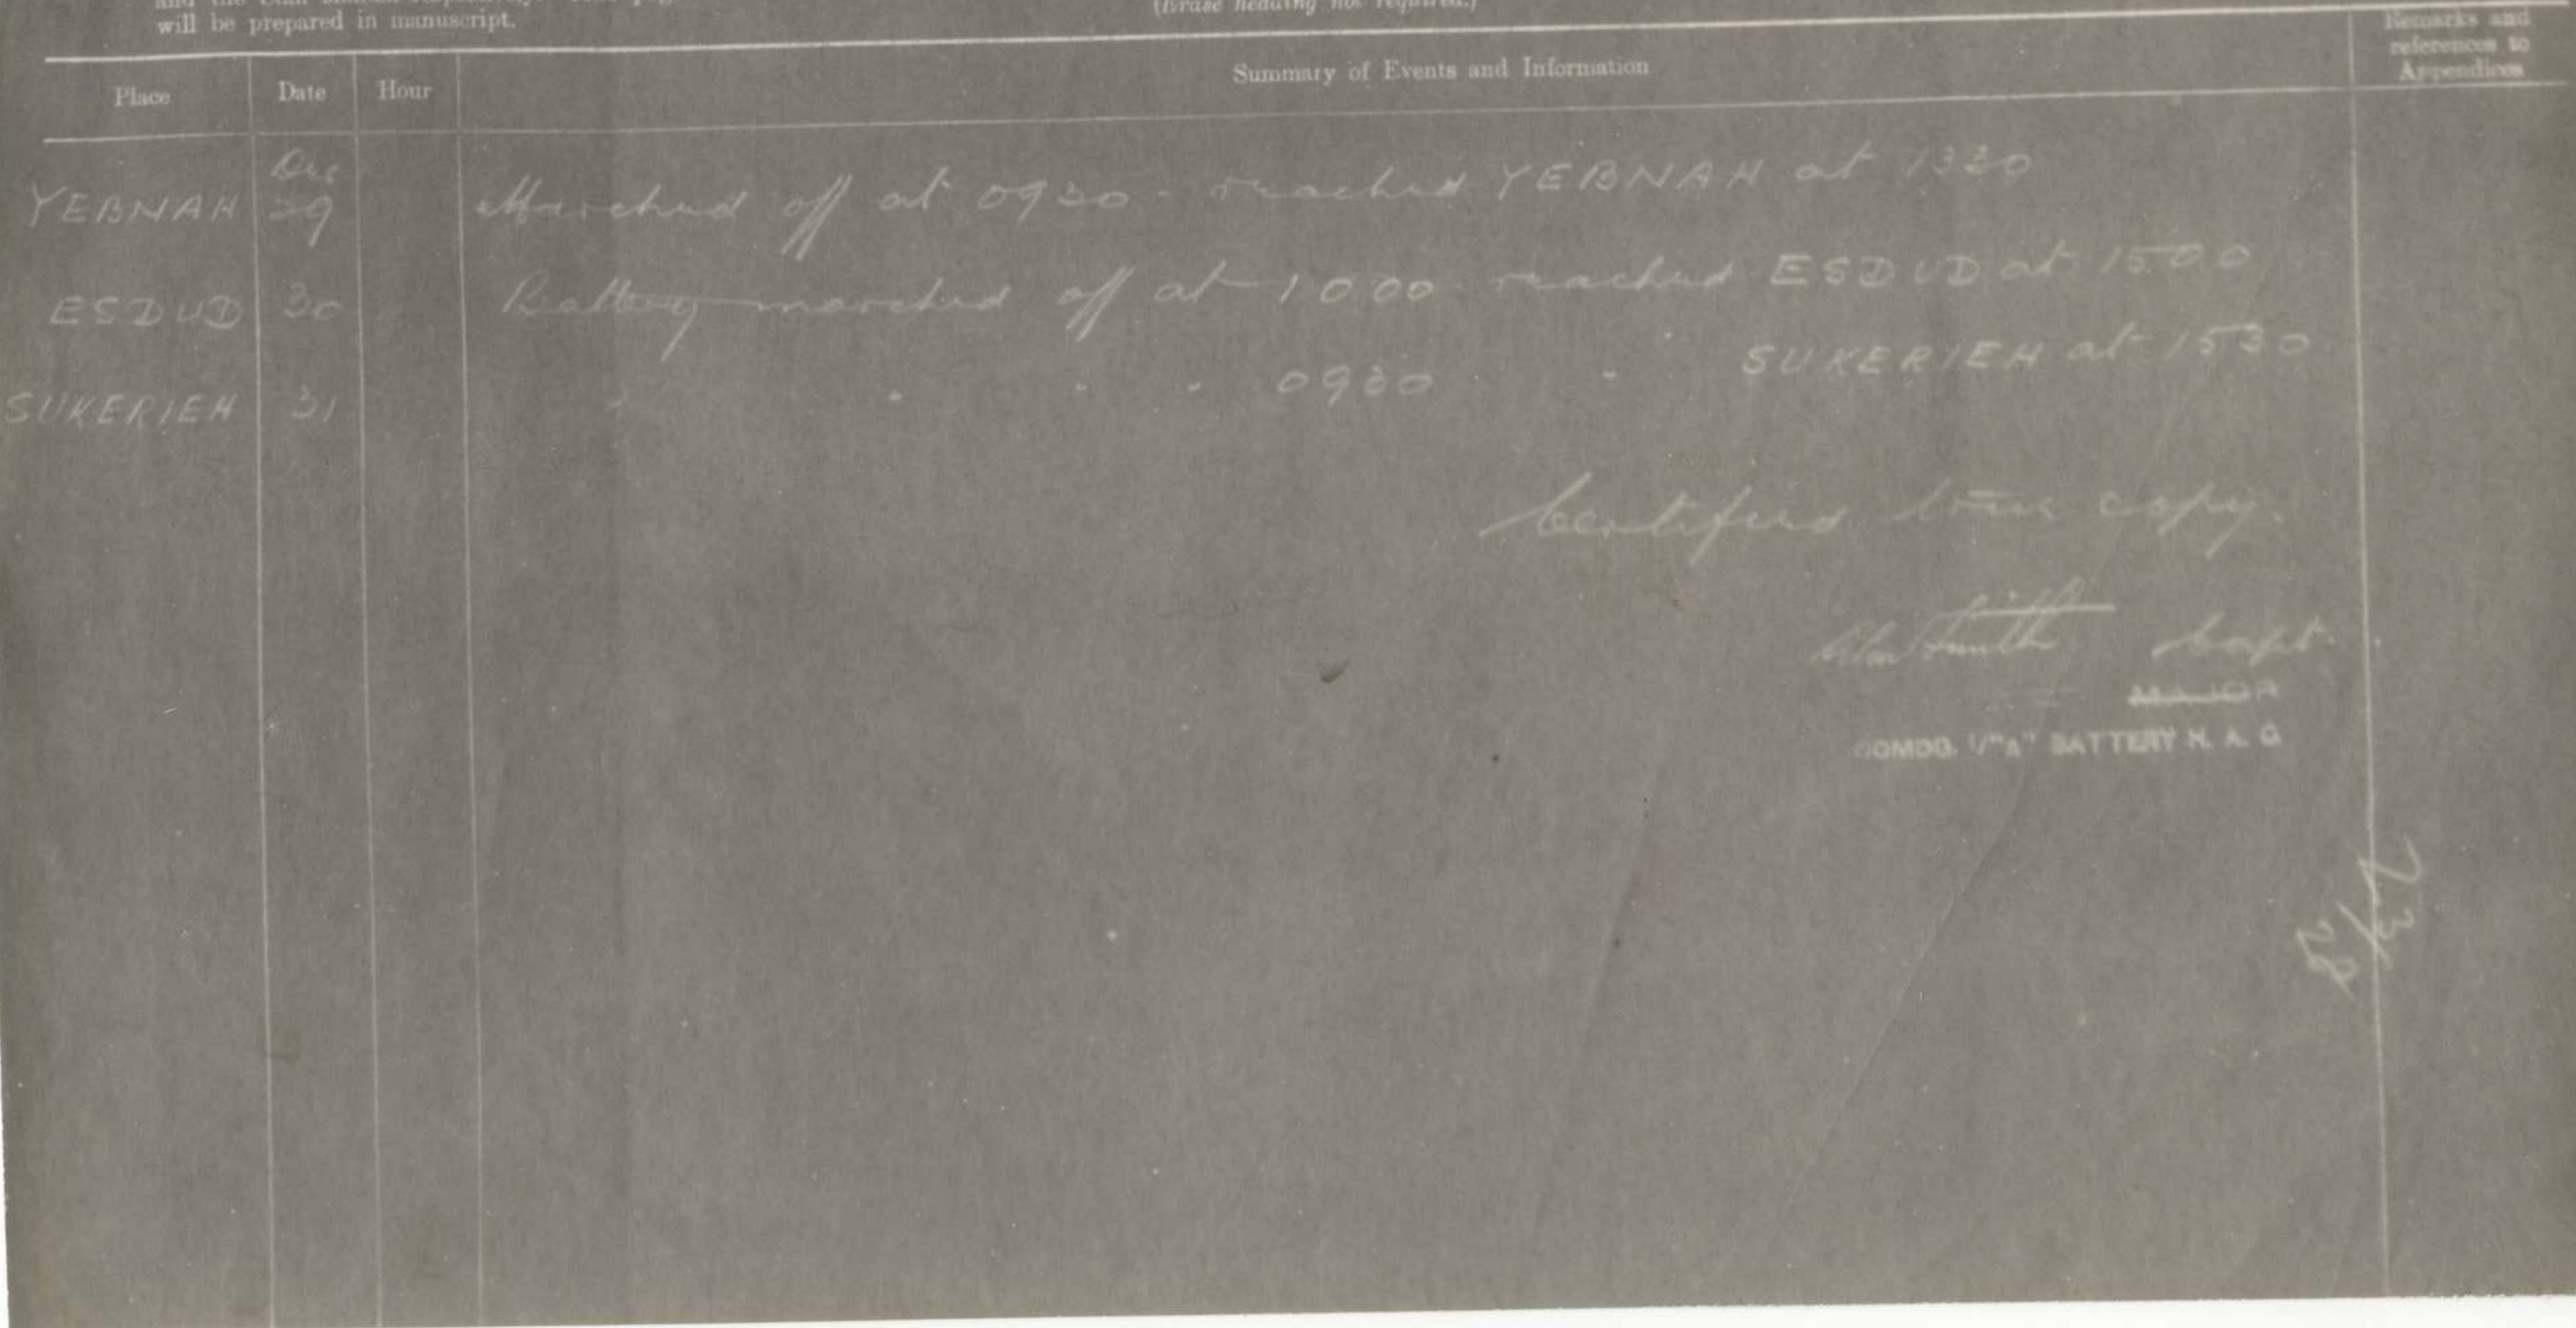 will be prepared in manuscript.
(Erase heading not required.)
Place Date Hour Summary of Events and Information Remarks and
references to
Appendices
Dec
YEBNAH 29 Marched off at 0930 - reached YEBNAH at 1330
ESDUD 30 Battery marched off at 1000 reached ESDUD at 1500
SUKERIEH 31 " " " " 0930 " SUKERIEH at 1530
Certified true copy.
Smith Capt.
MAJOR
COMDG. 1/"A" BATTERY H. A. C.